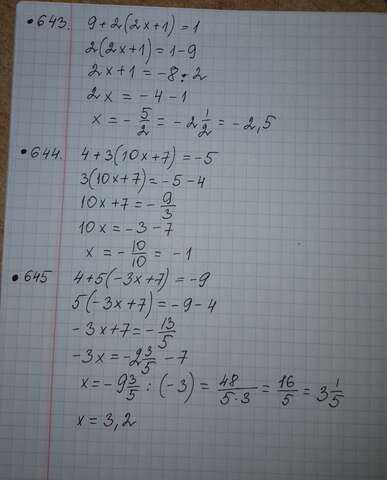 •643. 9+2(2x+1)=1
2(2x+1)=1-9
2x+1=-8:2
2x=-4-1
x=-5/2=-2 1/2=-2,5
•644. 4+3(10x+7)=-5
3(10x+7)=-5-4
10x+7=-9/3
10x=-3-7
x=-10/10=-1
•645 4+5(-3x+7)=-9
5(-3x+7)=-9-4
-3x+7=-13/5
-3x=-2 3/5-7
x=-9 3/5:(-3)=48/5·3=16/5=3 1/5
x=3,2